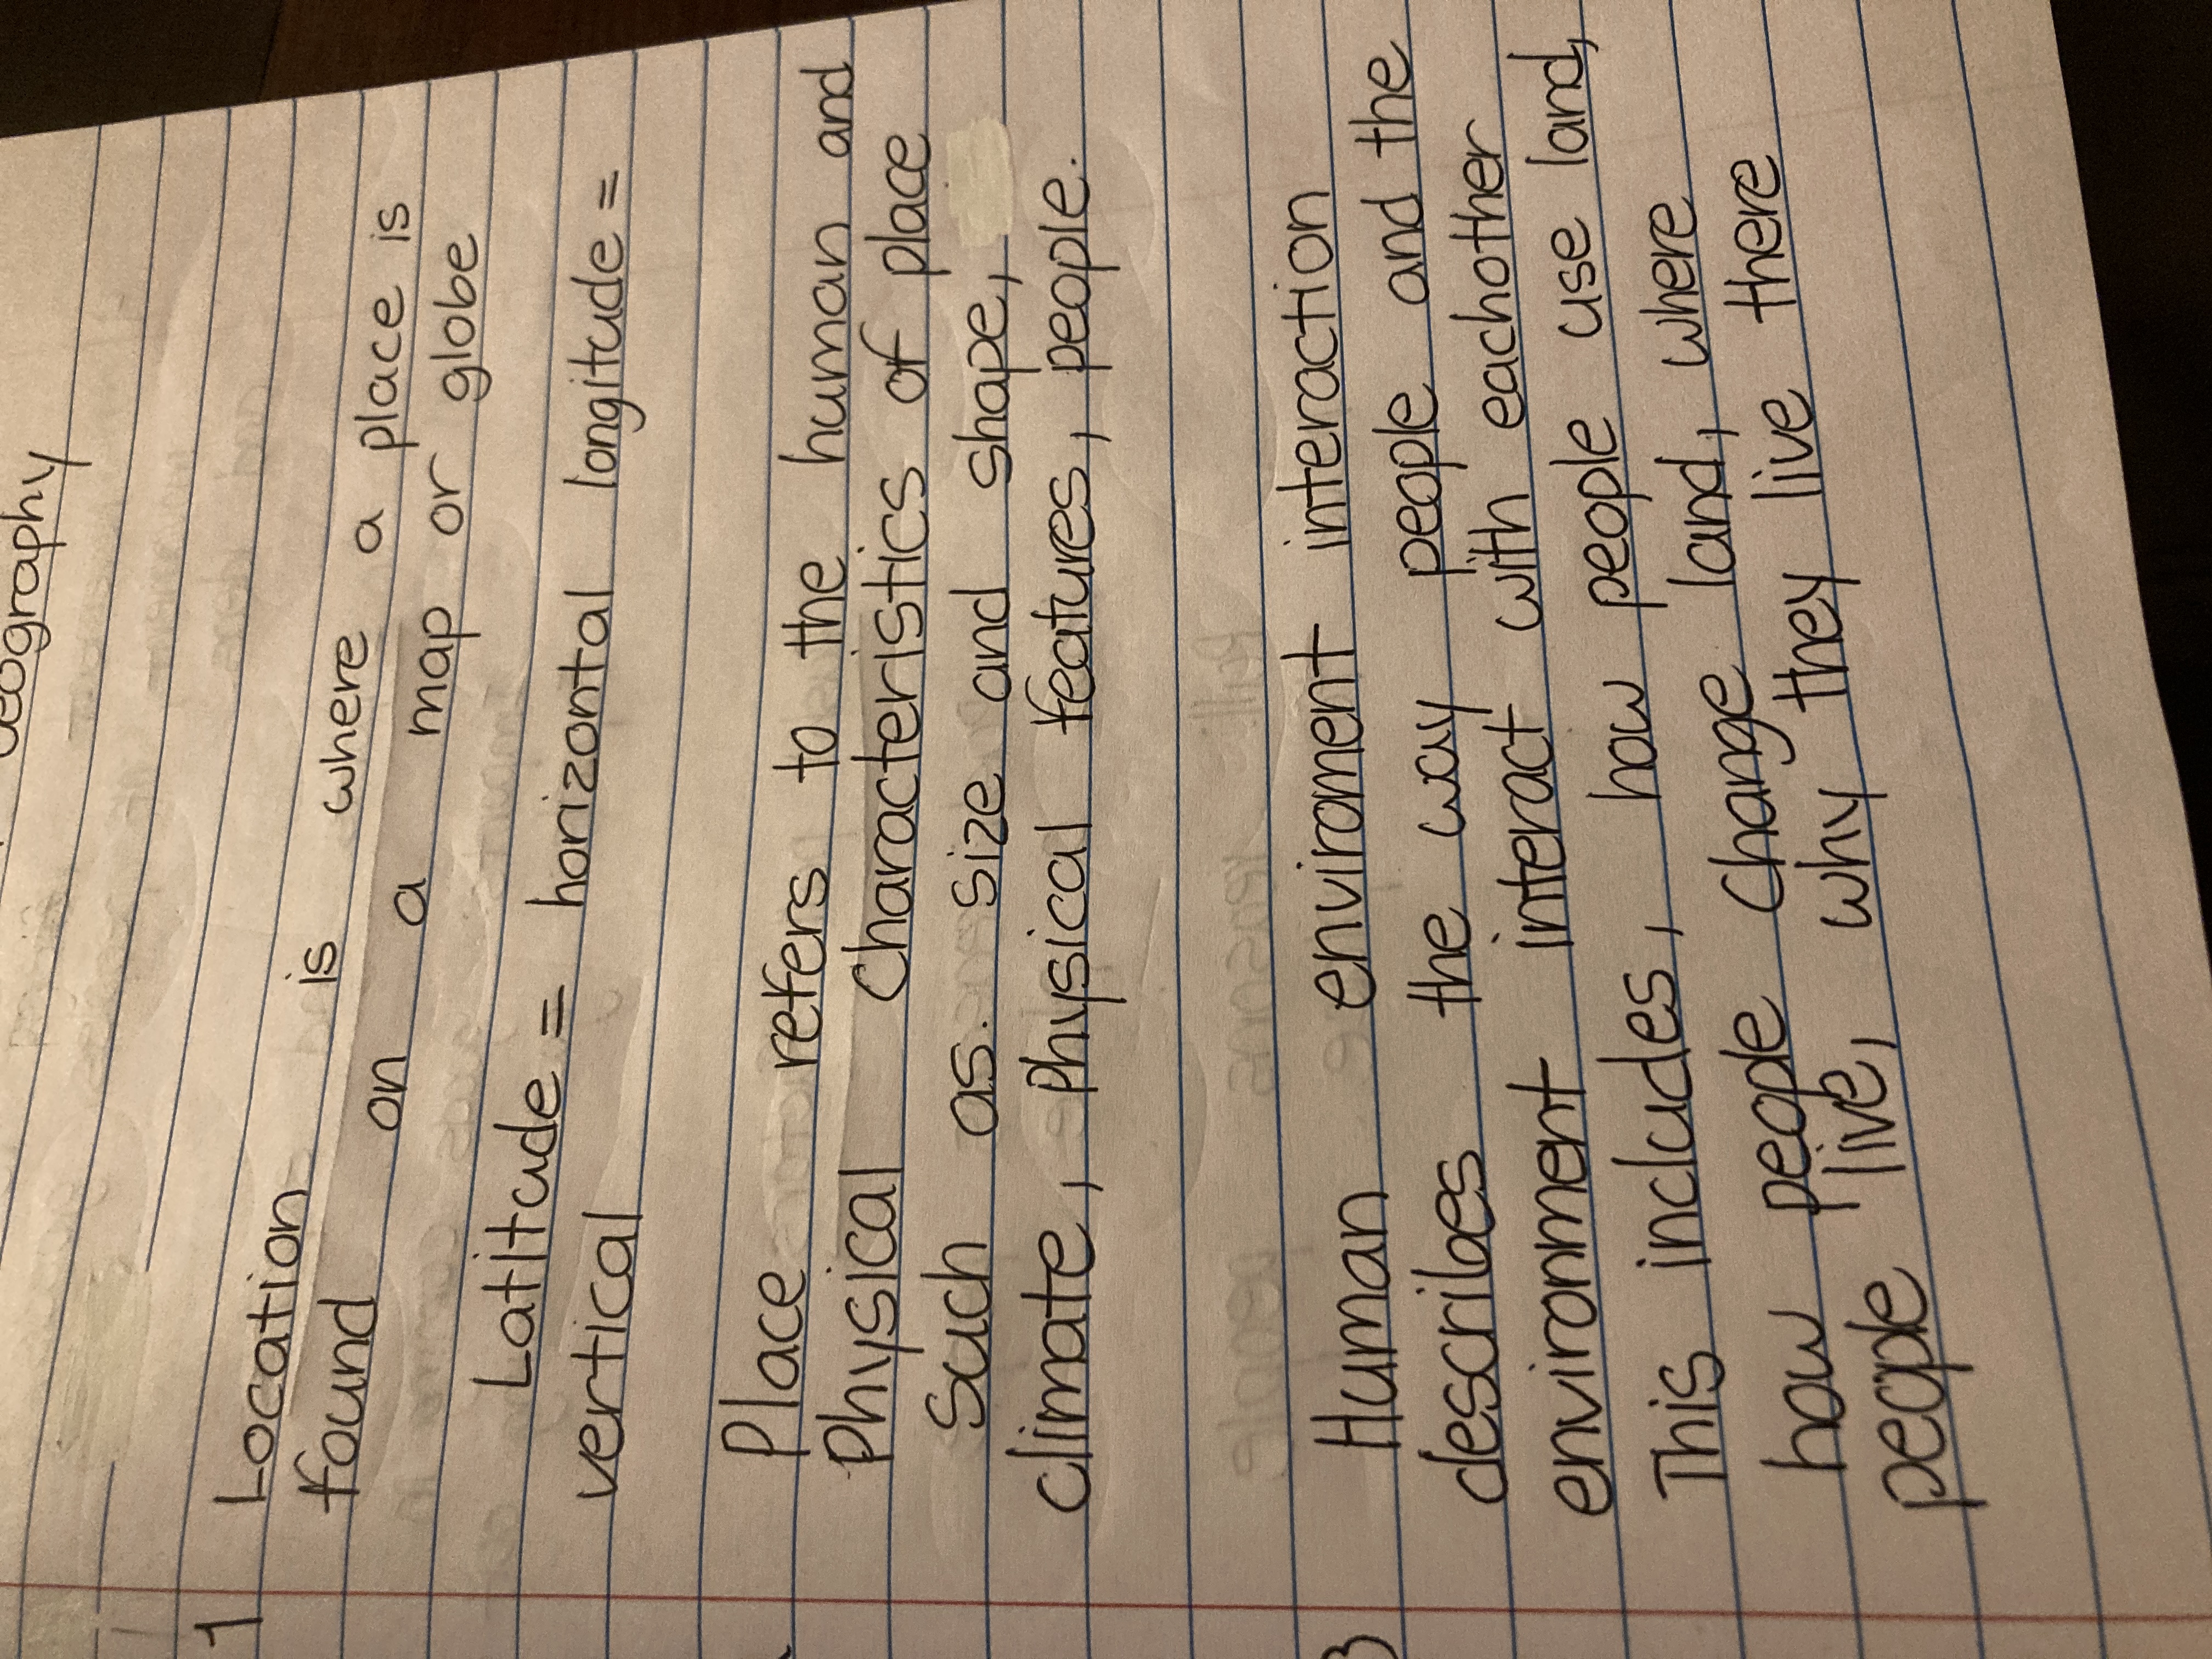 Geography
1 Location is where a place is
found on a map or globe
Latitude = horizontal longitude =
vertical
Place refers to the human and
Physical Characteristics of place
Such as. size and shape,
climate, Physical features, people.
3 Human enviroment interaction
describes the way people and the
environment interact with eachother
This includes, how people use land,
how people Change land, where
people live, why they live there